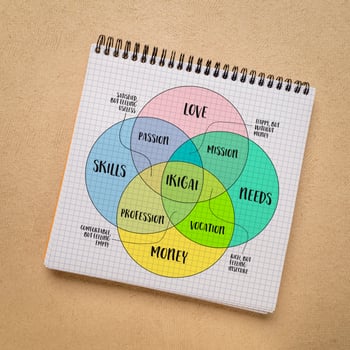 LOVE
SATISFIED,
BUT FEELING
USELESS
HAPPY, BUT
WITHOUT
MONEY
PASSION
MISSION
SKILLS
IKIGAI
NEEDS
PROFESSION
VOCATION
COMFORTABLE,
BUT FEELING
EMPTY
MONEY
RICH, BUT
FEELING
INSECURE